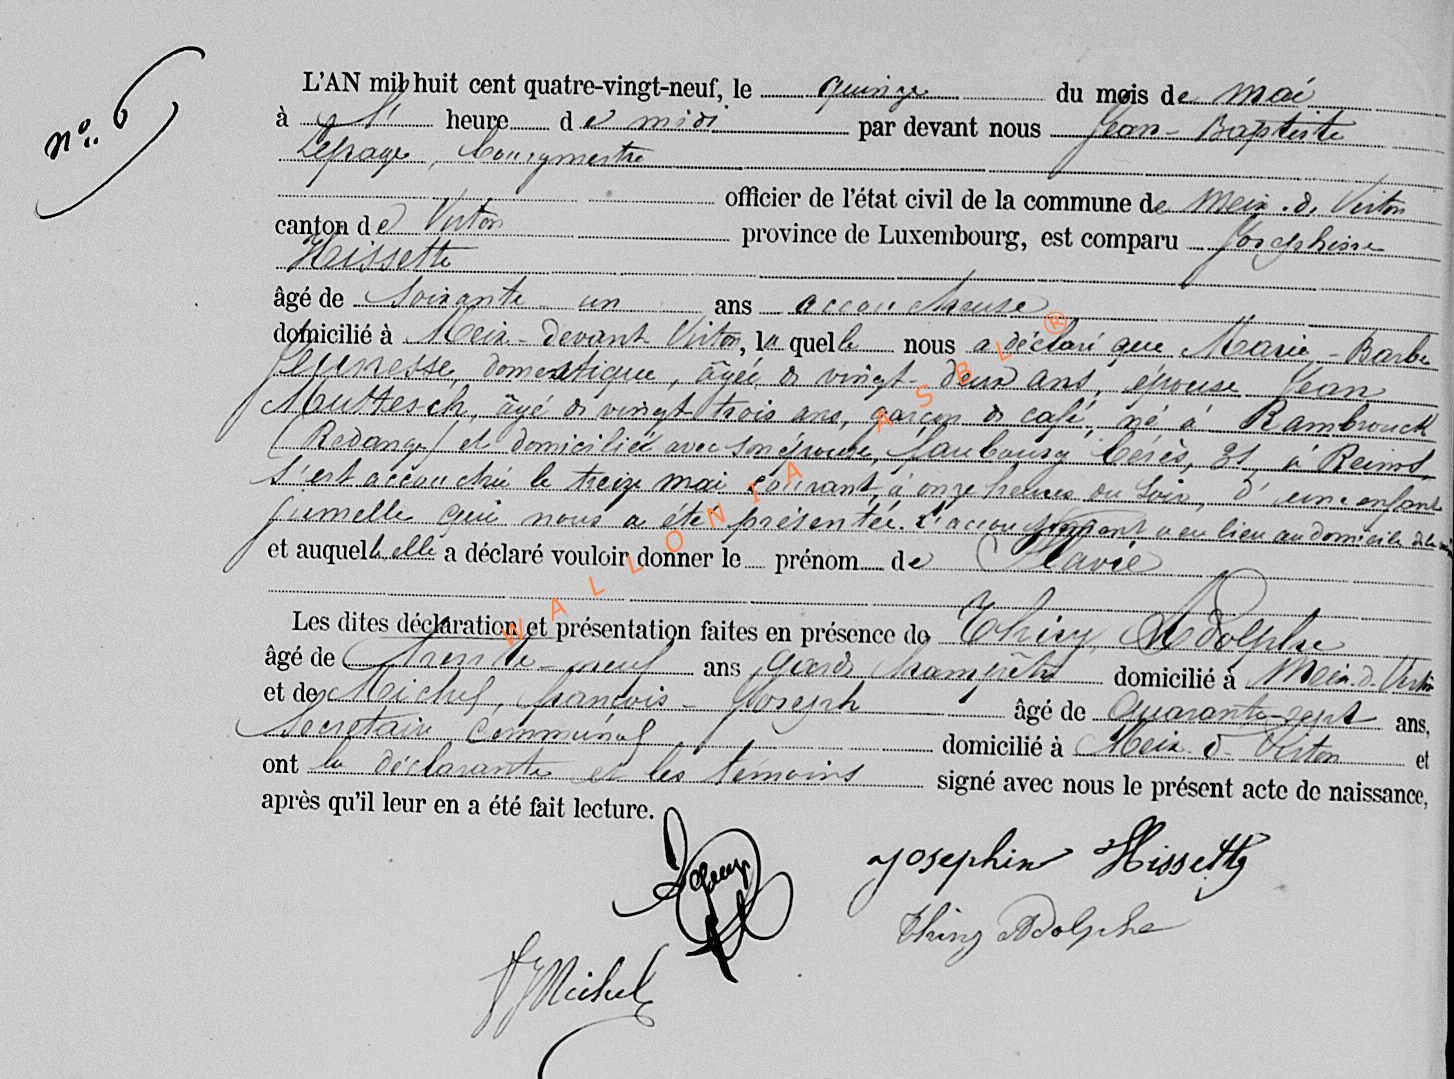 n°. 6
L'AN mil huit cent quatre-vingt-neuf, le quinze du mois de mai
à heure de midi par devant nous Jean-Baptiste
Lepage, bourgmestre
officier de l'état civil de la commune de Meix-d.-Virton
canton de Virton province de Luxembourg, est comparu Joséphine
Hissette
âgé de soixante un ans accoucheuse
domicilié à Meix-devant Virton, la quelle nous a déclaré que Marie-Barbe
Jeunesse, domestique, âgée de vingt-deux ans, épouse Jean
Muttesch, âgé de vingt trois ans, garçon de café, né à Rambrouck
(Redange) et domiciliée avec son épouse, faubourg Cérès, 31, à Reims,
s'est accouchée le treize mai courant, à onze heures du soir, d'une enfant
jumelle qui nous a été présentée. L'accouchement a eu lieu au domicile de la
et auquel elle a déclaré vouloir donner le prénom de Flavie
Les dites déclaration et présentation faites en présence de Thiry, Adolphe
âgé de trente-neuf ans garde champêtre domicilié à Meix-d.-Virton
et de Michel, François-Joseph âgé de quarante-sept ans,
Secrétaire communal domicilié à Meix-d.-Virton et
ont la déclarante et les témoins signé avec nous le présent acte de naissance,
après qu'il leur en a été fait lecture.
Josephin Hissette
Thiry Adolphe
Michel
WALLONIA ASBL ®